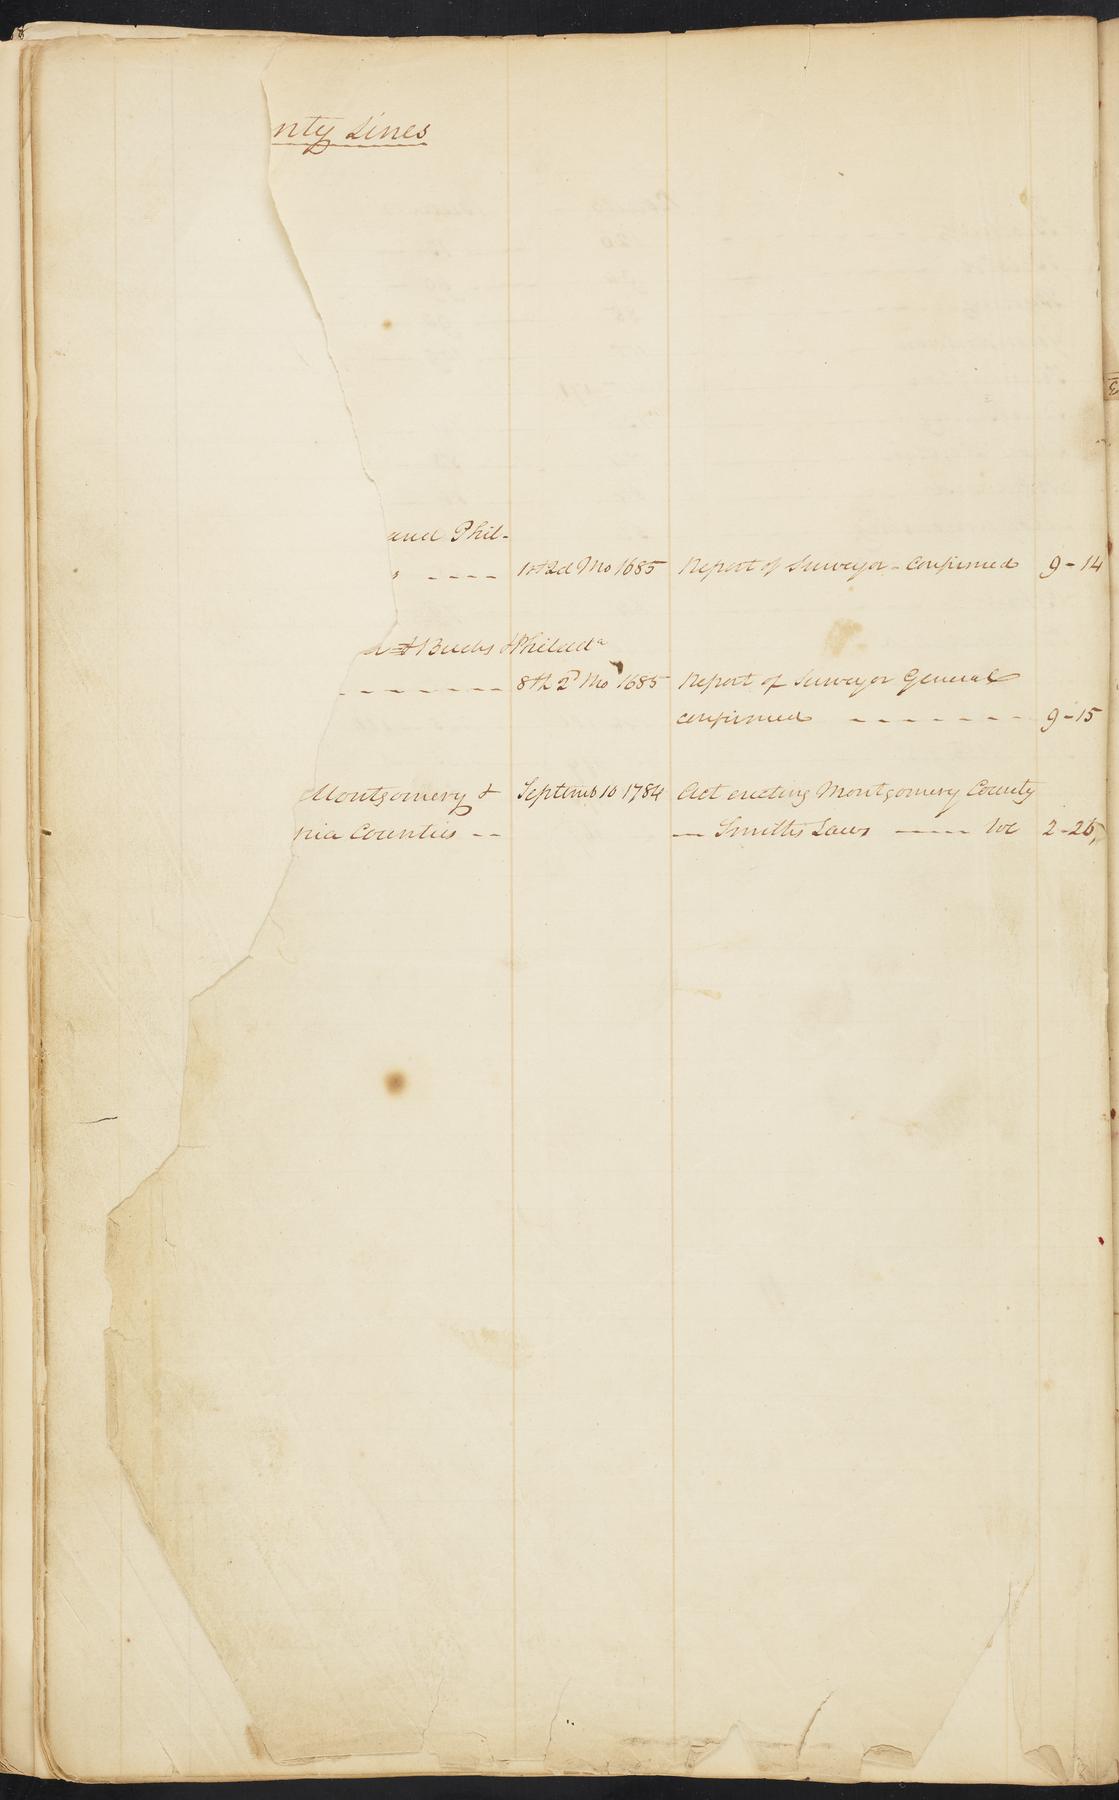 nty Lines
and Phil-
" - - - - 1st 2d Mo 1685 Report of Surveyor - Confirmed 9-14
& Bucks & Philada
- - - - - - - - 8th 2d Mo 1685 Report of Surveyor General
confirmed - - - - - - - 9-15
Montgomery & Septemb 10 1784 Act erecting Montgomery County
hia Counties -- — Smiths Laws —— Vol 2-26